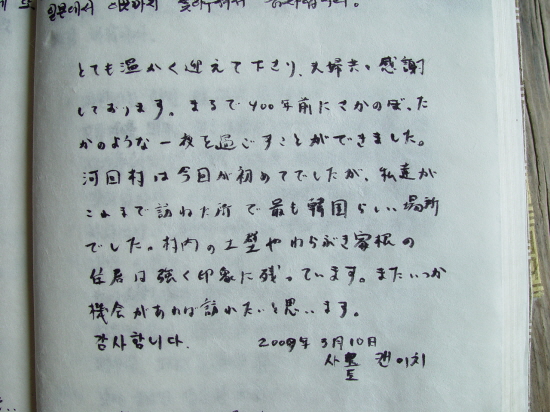 일본에서 여기까지
とても温かく迎えて下さり、夫婦共々感謝
しております。まるで400年前にさかのぼった
かのような一夜を過ごすことができました。
河回村は今回が初めてでしたが、私達が
これまで訪ねた所で最も韓国らしい場所
でした。村内の土壁やわらぶき家根の
住居は強く印象に残っています。またいつか
機会があれば訪れたいと思います。
감사합니다. 2009年 5月10日
사또 켄이치